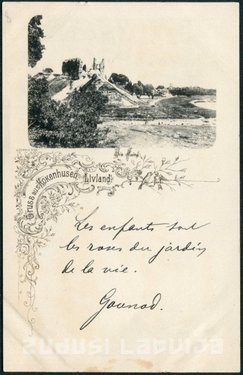 Gruss aus Kokenhusen
Livland
Les enfants sont
les roses du jardin
de la vie.
Gounod.
zudusi latvija